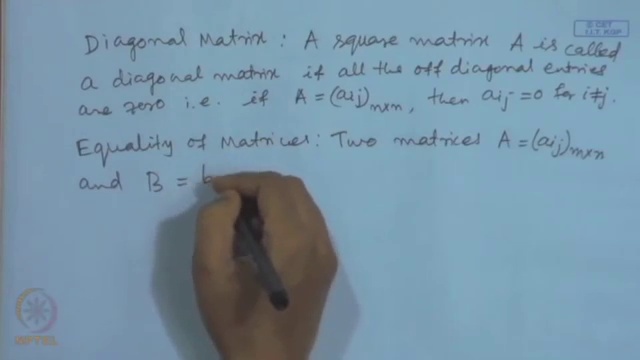 © CET
I.I.T. KGP
Diagonal Matrix : A square matrix A is called
a diagonal matrix if all the off diagonal entries
are zero i.e. if A = (aij)n×n, then aij = 0 for i≠j.
Equality of Matrices : Two matrices A = (aij)m×n
and B = b
NPTEL